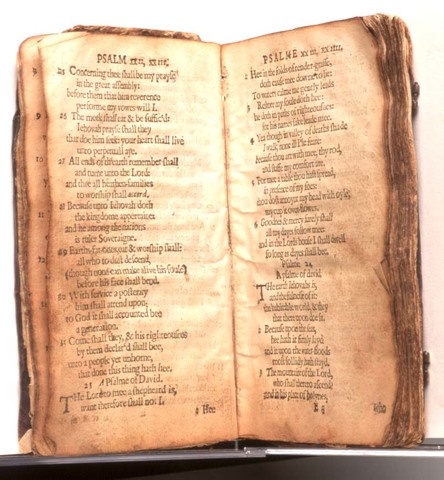 PSALM xxii, xxiii.
25 Concerning thee shall be my prayse
in the great assembly:
before them that him reverence
performe my vowes will I.
26 The meek shall eat & be suffic'd:
Iehovah prayse shall they
that doe him seek: your heart shall live
unto perpetuall aye.
27 All ends of th'earth remember shall
and turne unto the Lord:
and thee all heathen-families
to worship shall accord.
28 Because unto Iehovah doth
the kingdome appertaine:
and he among the nations
is ruler Soveraigne.
29 Earths-fat-ones, eat & worship shall:
all who to dust descend,
(though none can make alive his soule)
before his face shall bend.
30 With service a posterity
him shall attend upon;
to God it shall accounted bee
a generation.
31 Come shall they, & his righteousnes
by them declar'd shall bee,
unto a people yet unborne,
that done this thing hath hee.
23 A Psalme of David.
THe Lord to mee a shepheard is,
want therefore shall not I.
2 Hee
PSALME xxiii, xxiiii.
2 Hee in the folds of tender-grasse,
doth cause mee downe to lie:
To waters calme me gently leads
3 Restore my soule doth hee:
he doth in paths of righteousnes:
for his names sake leade mee.
4 Yea though in valley of deaths shade
I walk, none ill I'le feare:
because thou art with mee, thy rod,
and staffe my comfort are.
5 For mee a table thou hast spread,
in presence of my foes:
thou dost annoynt my head with oyle,
my cup it over-flowes.
6 Goodnes & mercy surely shall
all my dayes follow mee:
and in the Lords house I shall dwell
so long as dayes shall bee.
Psalme 24
A psalme of david.
THe earth Iehovahs is,
and the fulnesse of it:
the habitable world, & they
that there upon doe sit.
2 Because upon the seas,
hee hath it firmly layd:
and it upon the water-floods
most sollidly hath stayd.
3 The mountaine of the Lord,
who shall thereto ascend?
and in his place of holynes,